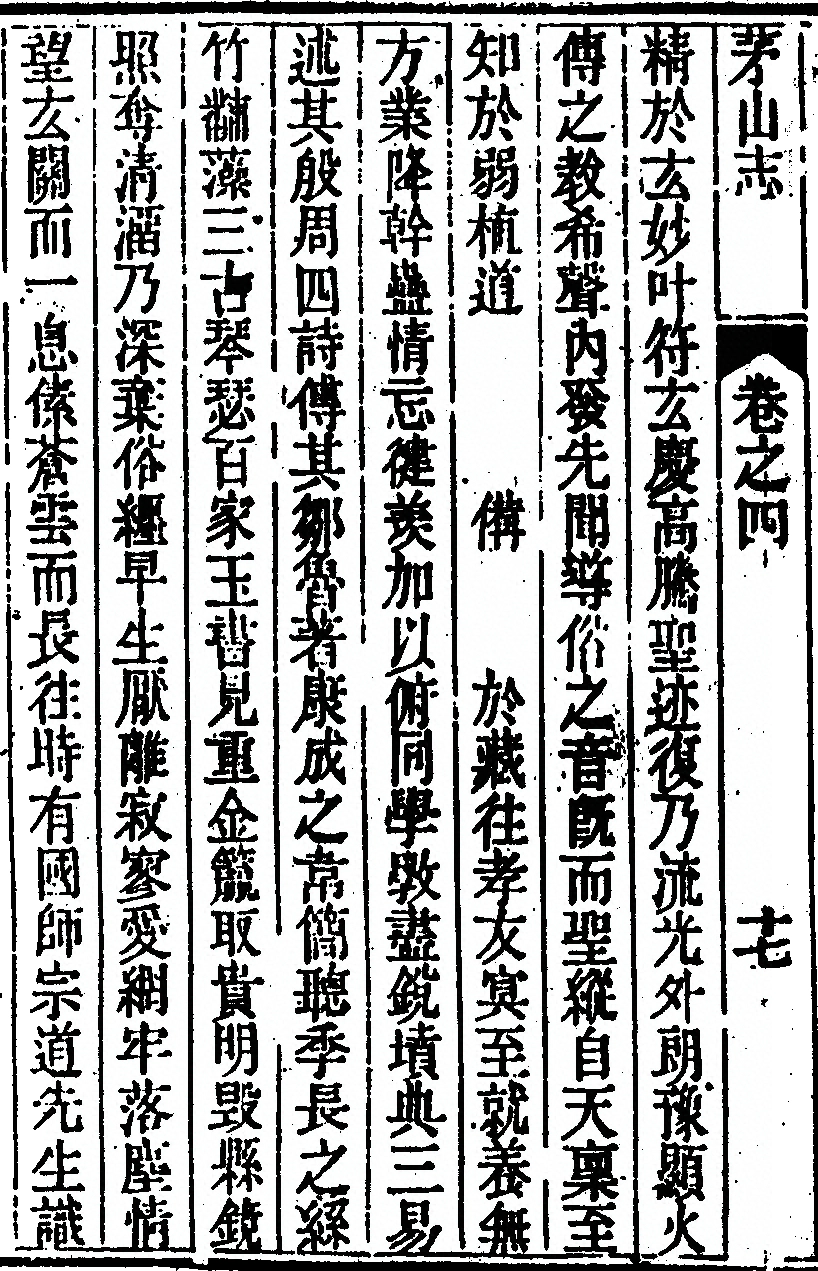 茅山志 卷之四 十七
精於玄妙叶符玄慶高騰聖迹復乃流光外朗豫顯火
傳之教希聲內發先聞導俗之音旣而聖縱自天稟至
知於弱梳道 備 於藏往孝友冥至就養無
方業降幹蠱情忘健羨加以俯同學斆盡銳墳典三易
述其殷周四詩傳其鄒魯著康成之帛簡聰季長之綵
竹黼藻三古琴瑟百家玉書見重金籯取貴明毁縣鏡
照奪淸淄乃深棄俗纆早生厭離寂寥愛網牢落塵情
望玄關而一息傃蒼雲而長往時有國師宗道先生識